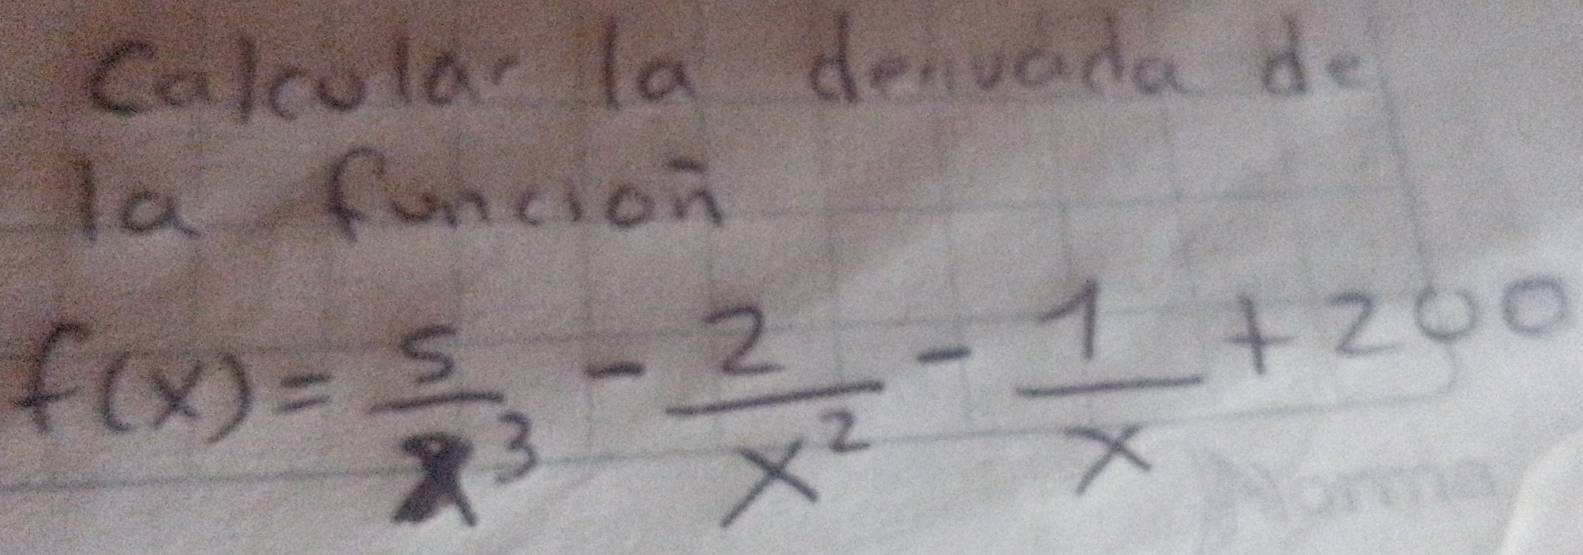 Calcular la derivada de
la función
f(x) = 5/x³ - 2/x² - 1/x + 200
Norma